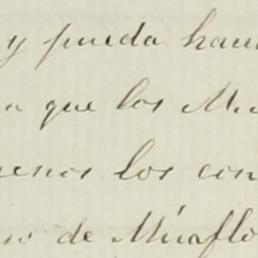 y pueda hacer
a que los Mu
menos los con
so de Miraflo